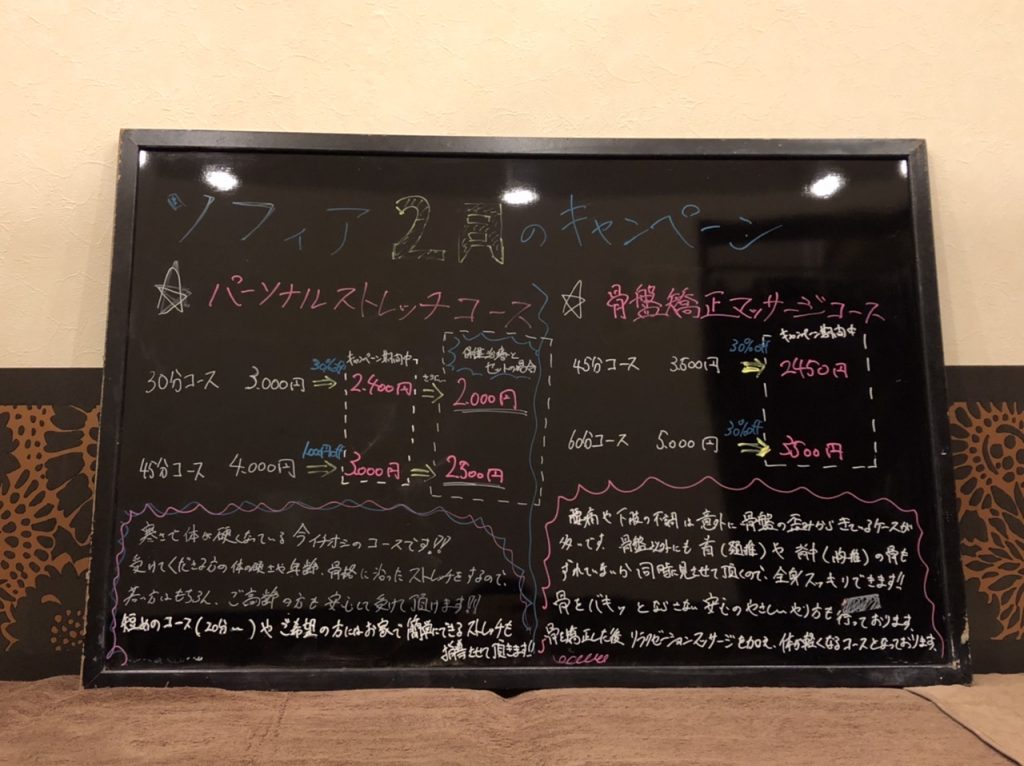 ソフィア 2月のキャンペーン
☆ パーソナルストレッチコース
キャンペーン期間中
セットの場合
30分コース 3.000円 30%off ⇒ 2.400円 さらに ⇒ 2.000円
45分コース 4.000円 1,000円off ⇒ 3.000円 ⇒ 2.500円
寒さで体が硬くなっている今イチオシのコースです!!
受けてくださる方の体の硬さや年齢、骨格に沿ったストレッチをするので、
若い方はもちろん、ご高齢の方も安心して受けて頂けます!!
短めのコース(20分〜)やご希望の方にはお家で簡単にできるストレッチも
指導させて頂きます!!
☆ 骨盤矯正マッサージコース
キャンペーン期間中
45分コース 3.500円 30%off ⇒ 2450円
60分コース 5.000円 30%off ⇒ 3500円
腰痛や下肢の不調は意外に骨盤の歪みからきているケースが
多いです。骨盤以外にも首(頚椎)や背中(胸椎)の骨も
ずれていないか同時に見させて頂くので、全身スッキリできます!!
骨をバキッとならさない安心のやさしいやり方も行っております。
骨を矯正した後リラクゼーションマッサージを加え、体が軽くなるコースとなっております。